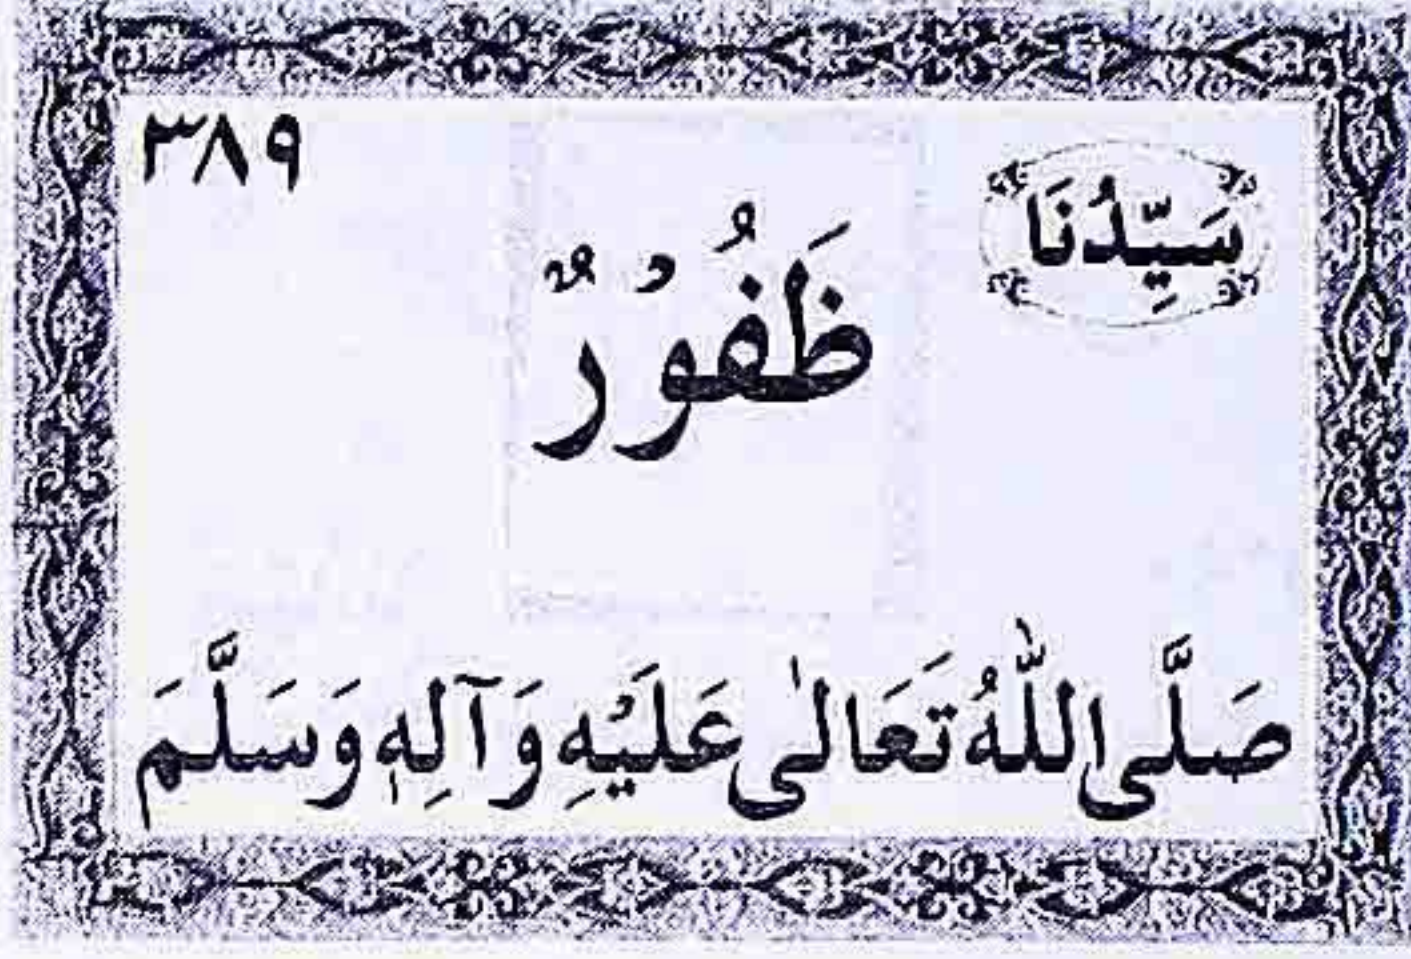 ٣٨٩
سَيِّدُنَا
ظَفُوْرٌ
صَلَّى اللّٰهُ تَعَالٰى عَلَيْهِ وَآلِهٖ وَسَلَّمَ